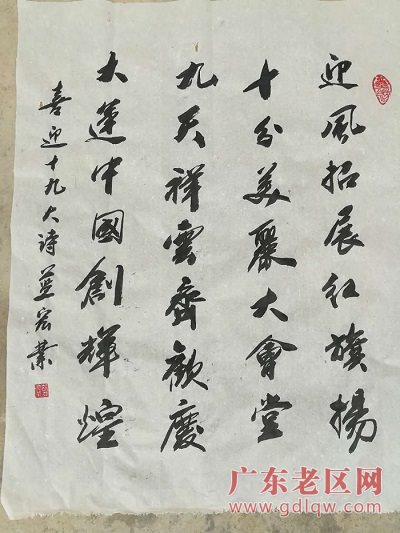 迎风招展红旗揚
十分美麗大會堂
九天祥雲齊歡慶
大運中國創輝煌
喜迎十九大诗
广东老区网
www.gdlqw.com